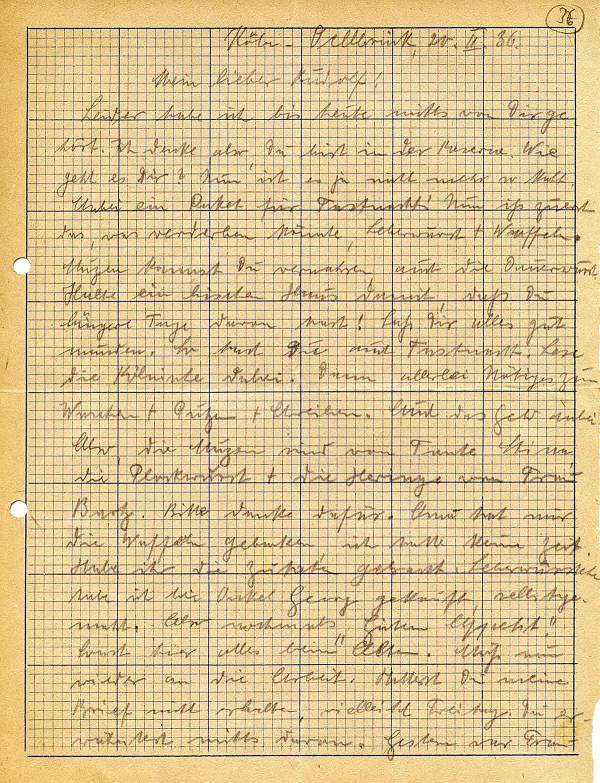 36
Köln-Dellbrück, 20. II. 36.
Mein lieber Rudolf!
Leider habe ich bis heute nichts von Dir ge-
hört. Ich denke also, Du bist in der Kaserne. Wie
geht es Dir? Nun ist es ja nicht mehr so kalt.
Anbei ein Paket für Fastnacht! Nun iß zuerst
das, was verderben könnte, Leberwurst + Waffeln.
Muzen kannst Du verwahren, auch die Dauerwurst.
Halte ein bischen Haus damit, daß Du
längere Tage davon hast! Laß Dir alles gut
munden. So hast Du auch Fastnacht. Lese
die Kölnische dabei. Dann allerlei Nötiges zum
Waschen + Putzen + Schreiben. Auch das Geld anbei.
Also, die Muzen sind von Tante Stina,
die Plockwurst + die Heringe von Frau
Bartz. Bitte danke dafür. Änne hat mir
die Waffeln gebacken, ich hatte keine Zeit.
Habe ihr die Zutaten gebracht. Leberwürstchen
habe ich bei Onkel Georg gekauft, selbstge-
macht. Also nochmals „Guten Appetit“.
Sonst hier alles beim Alten. Muß nun
wieder an die Arbeit. Hattest Du meinen
Brief nicht erhalten, vielleicht Freitag. Du er-
wähntest nichts davon. Gestern war Frau